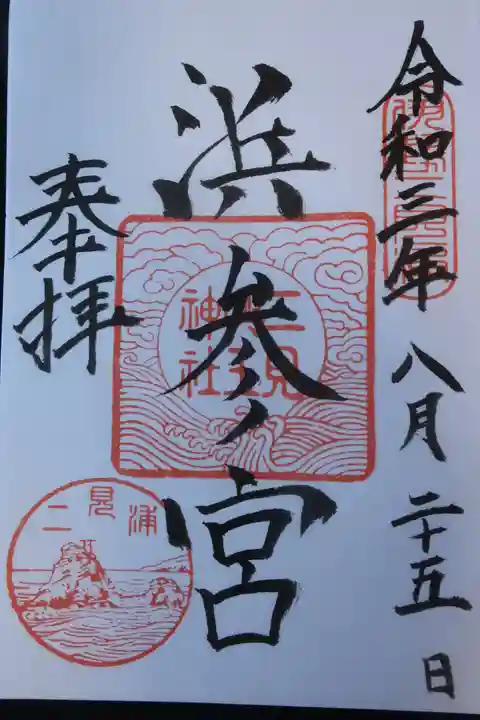 令和三年八月二十五日
浜参宮
二見
興玉
神社
奉拝
二見浦